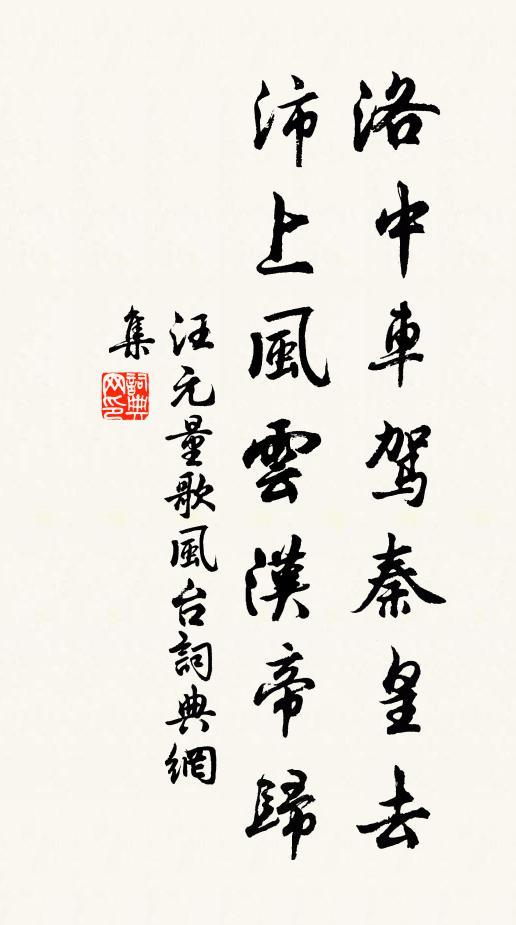 洛中車駕秦皇去
沛上風雲漢帝歸
汪元量歌風台詞典網
集
詞典
网印